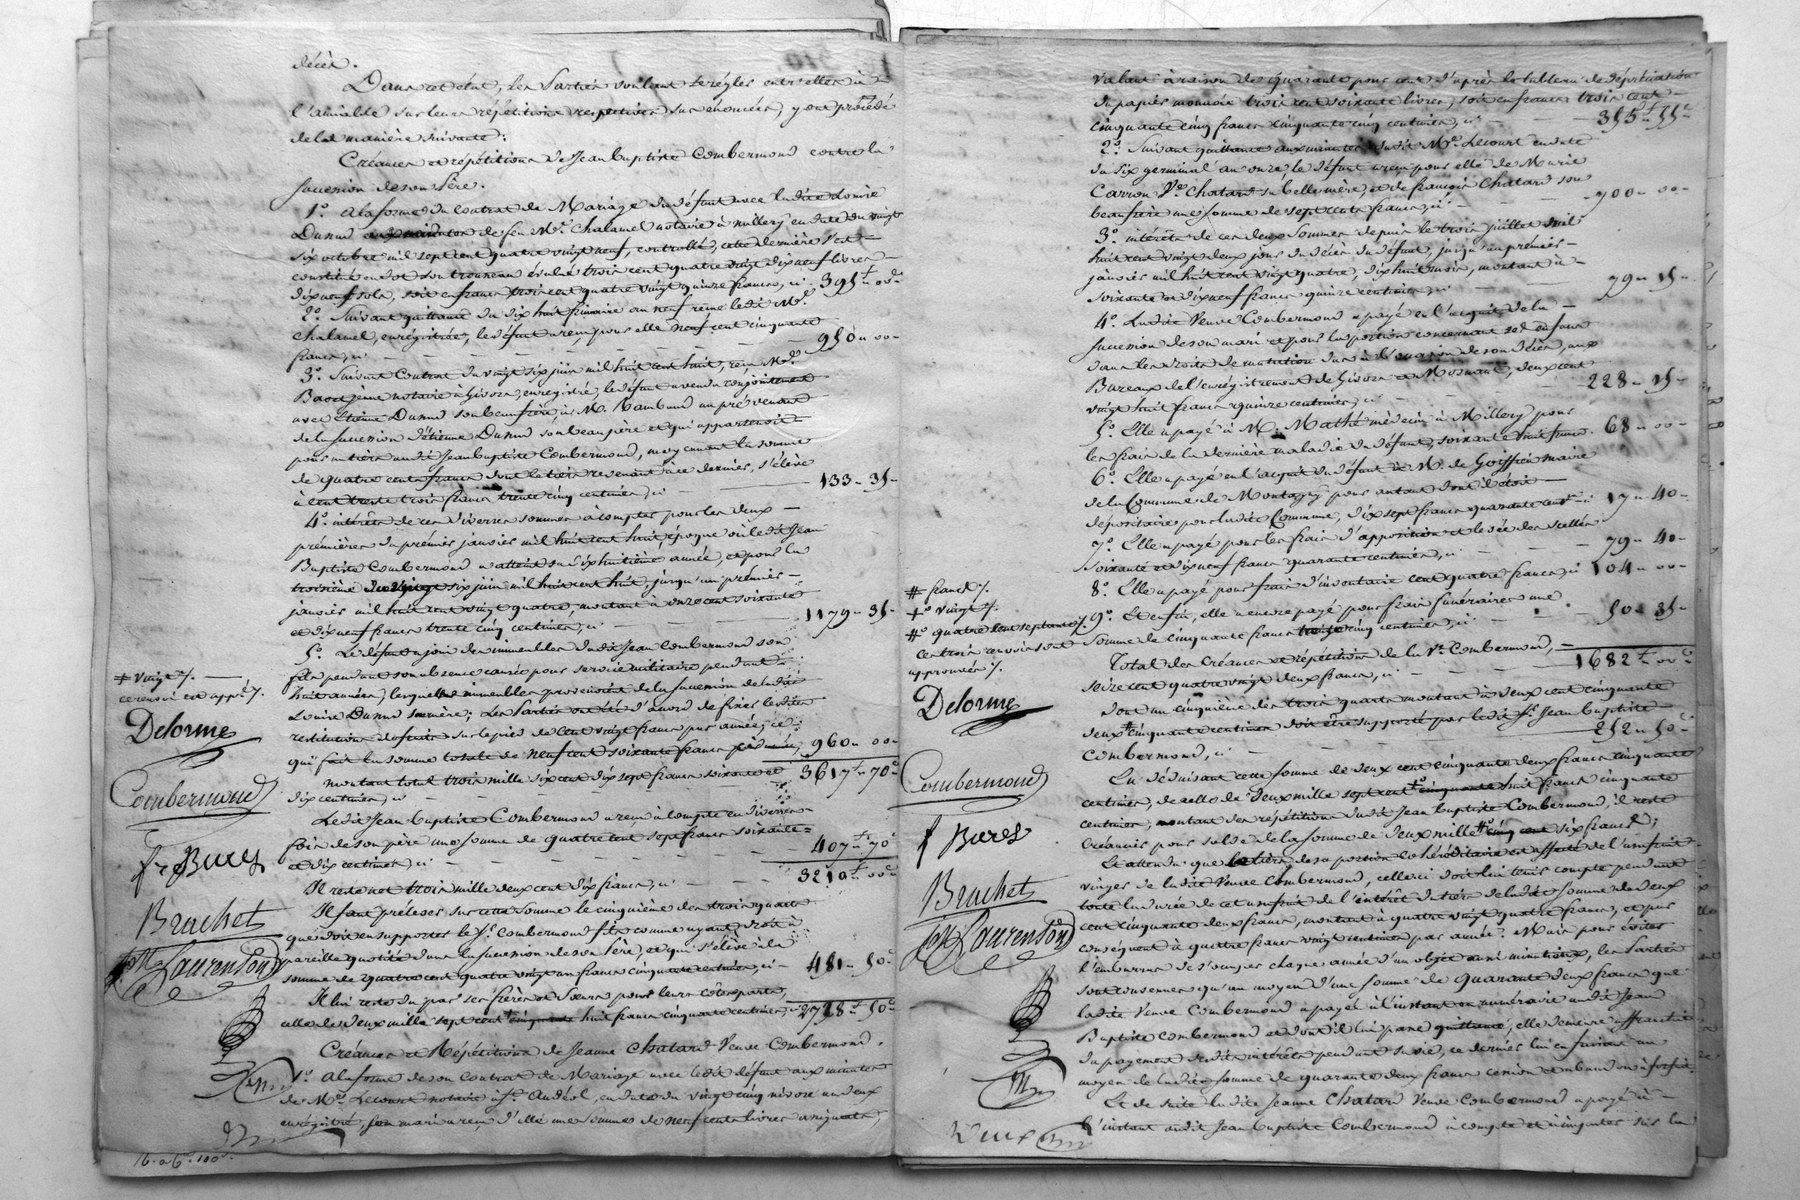 décès.
Dans cet état, les Parties voulant se régler entr'elles à
l'amiable sur leurs répétitions respectives sus énoncées, y ont procédé
de la manière suivante :
Créances et répétitions de Jean Baptiste Combermond contre la
succession de son Père.
1.° A la forme du contrat de Mariage du défunt avec ladite Louise
Dunud aux minutes de feu M.e Chalamel notaire à Millery en date du vingt
six octobre mil sept cent quatre vingt neuf, controllé, cette dernière s'est
constitué en dot son trousseau évalué trois cent quatre vingt dix neuf livres
dix neuf sols, soit en francs trois cent quatre vingt quinze francs, ci 395 " 00
2.° Suivant quittance du dix huit frimaire an neuf reçue ledit M.e
Chalamel, enregistrée, le défunt a reçu pour elle neuf cent cinquante
francs, ci 950 " 00
3.° Suivant Contrat du vingt six juin mil huit cent huit, reçu M.e
notaire à Givors, enregistré, le défunt a vendu conjointement
avec Etienne Dunud son beaufrère à M. Rambaud un pré venant
de la succession d'Etienne Dunud son beau père et qui appartenoit
pour un tiers audit Jean Baptiste Combermond, moyennant la somme
de quatre cents francs dont le tiers revenant à ce dernier, s'élève
à cent trente trois francs trente cinq centimes, ci 133 " 35
4.° intérêts de ces diverses sommes à compter pour les deux
premières du premier janvier mil huit cent huit, époque où ledit Jean
Baptiste Combermond a atteint sa dix huitième année, et pour la
troisième du vingt six juin mil huit cent huit, jusqu'au premier
janvier mil huit cent vingt quatre, montant à onze cent soixante
et dix neuf francs trente cinq centimes, ci 1179 " 35
5.° Le défunt a joui des immeubles dudit Jean Combermond son
fils pendant son absence causée pour service militaire pendant
huit années, lesquels immeubles provenoient de la succession de ladite
Louise Dunud sa mère ; Les Parties ont été d'accord de fixer lesdites
restitutions de fruits sur le pied de cent vingt francs par année, ce
qui fait la somme totale de neuf cent soixante francs 960 " 00
montant total trois mille six cent dix sept francs soixante et 3617 " 70
dix centimes, ci
Ledit Jean Baptiste Combermond a reçu à compte en diverses
fois de son père une somme de quatre cent sept francs soixante
et dix centimes, ci 407 " 70
Il reste net trois mille deux cent dix francs, ci 3210 " 00
Il faut prélever sur cette somme le cinquième des trois quarts
que doit en supporter le S.r Combermond fils comme ayant droit à
pareille quotité dans la succession de son Père, et qui s'élève à la
somme de quatre cent quatre vingt un francs cinquante centimes, ci 481 " 50
Il lui reste du par ses frères et soeurs pour leurs côte parts,
celle de deux mille sept cent # cinquante huit francs cinquante centimes, ci 2728 " 50
Créances et Répétitions de Jeanne Chatard Veuve Combermond.
1.° A la forme de son contrat de Mariage avec ledit défunt aux minutes
de M.e Lecourt notaire à S.t Andéol, en date du vingt cinq nivôse an deux
enregistré, son mari a reçu d'elle une somme de neuf cents livres assignats,
# vingt /.
ce renvoi est app.é /.
Delorme
Combermond
f Bures
Brachet
Laurenson
16.a 6.e 100.e
valant à raison de quarante pour cent d'après le tableau de dépréciation
du papier monnoie trois cent soixante livres, soit en francs trois cent
cinquante cinq francs cinquante cinq centimes, ci 355 " 55
2.° Suivant quittance aux minutes dudit M.e Lecourt en date
du six germinal an onze le défunt a reçu pour elle de Marie
Carron V.e Chatard sa belle mère, et de françois Chatard son
beaufrère une somme de sept cents francs, ci 700 " 00
3.° intérêts de ces deux sommes depuis le trois juillet mil
huit cent vingt deux jour du décès du défunt, jusqu'au premier
janvier mil huit cent vingt quatre, dix huit mois, montant à
soixante et dix neuf francs quinze centimes, ci 79 " 15
4.° Ladite Veuve Combermond a payé en l'acquit de la
succession de son mari et pour la portion concernant ses enfans
dans les droits de mutation dus à l'occasion de son décès, aux
Bureaux de l'enregistrement de Givors et Mornant, deux cent
vingt huit francs quinze centimes, ci 228 " 15
5.° Elle a payé à M. Mathé médecin à Millery pour
les frais de la dernière maladie du défunt, soixante huit francs 68 " 00
6.° Elle a payé en l'acquit du défunt à M. de Goiffieu maire
de la Commune de Montagny pour autant dont il étoit
dépositaire pour ladite Commune, dix sept francs quarante cent.s ci 17 " 40
7.° Elle a payé pour les frais d'apposition et levée des scellés
soixante et dix neuf francs quarante centimes, ci 79 " 40
8.° Elle a payé pour frais d'inventaire cent quatre francs, ci 104 " 00
9.° Et enfin, elle a encore payé pour frais funéraires une
somme de cinquante francs trente cinq centimes, ci 50 " 35
Total des Créances et répétitions de la V.e Combermond,
seize cent quatre vingt deux francs, ci 1682 " 00
dont un cinquième des trois quarts montant à deux cent cinquante
deux # cinquante centimes doit être supporté par ledit S.r Jean Baptiste
Combermond, ci 252 " 50
En déduisant cette somme de deux cent cinquante deux francs cinquante
centimes, de celle de Deux mille sept cent cinquante huit francs cinquante
centimes, montant des répétitions dudit Jean Baptiste Combermond, il reste
créancier pour solde de la somme de deux mille # cinq cent six francs ;
Et attendu que le tiers de sa portion cohéréditaire est affecté de l'usufruit
viager de ladite Veuve Combermond, celle ci doit lui tenir compte pendant
toute la durée de cet usufruit de l'intérêt du tiers de ladite somme de deux
cent cinquante deux francs, montant à quatre vingt quatre francs, et par
conséquent à quatre francs vingt centimes par année. Mais pour éviter
l'embarras de s'occuper chaque année d'un objet aussi minutieux, les Parties
sont convenues qu'au moyen d'une somme de quarante deux francs que
ladite Veuve Combermond a payée à l'instant en numéraire audit Jean
Baptiste Combermond et dont il lui passe quittance, elle demeure affranchie
du payement dudit intérêt pendant sa vie, ce dernier lui en faisant au
moyen de ladite somme de quarante deux francs cession et abandon à forfait.
Et de suite ladite Jeanne Chatard Veuve Combermond a payé à
l'instant audit Jean Baptiste Combermond à compte et à imputer sur la
# francs /.
+° vingt /.
#° quatre cent septante /.
ces trois renvois sont
approuvés /.
Delorme
Combermond
f Bures
Brachet
Laurenson